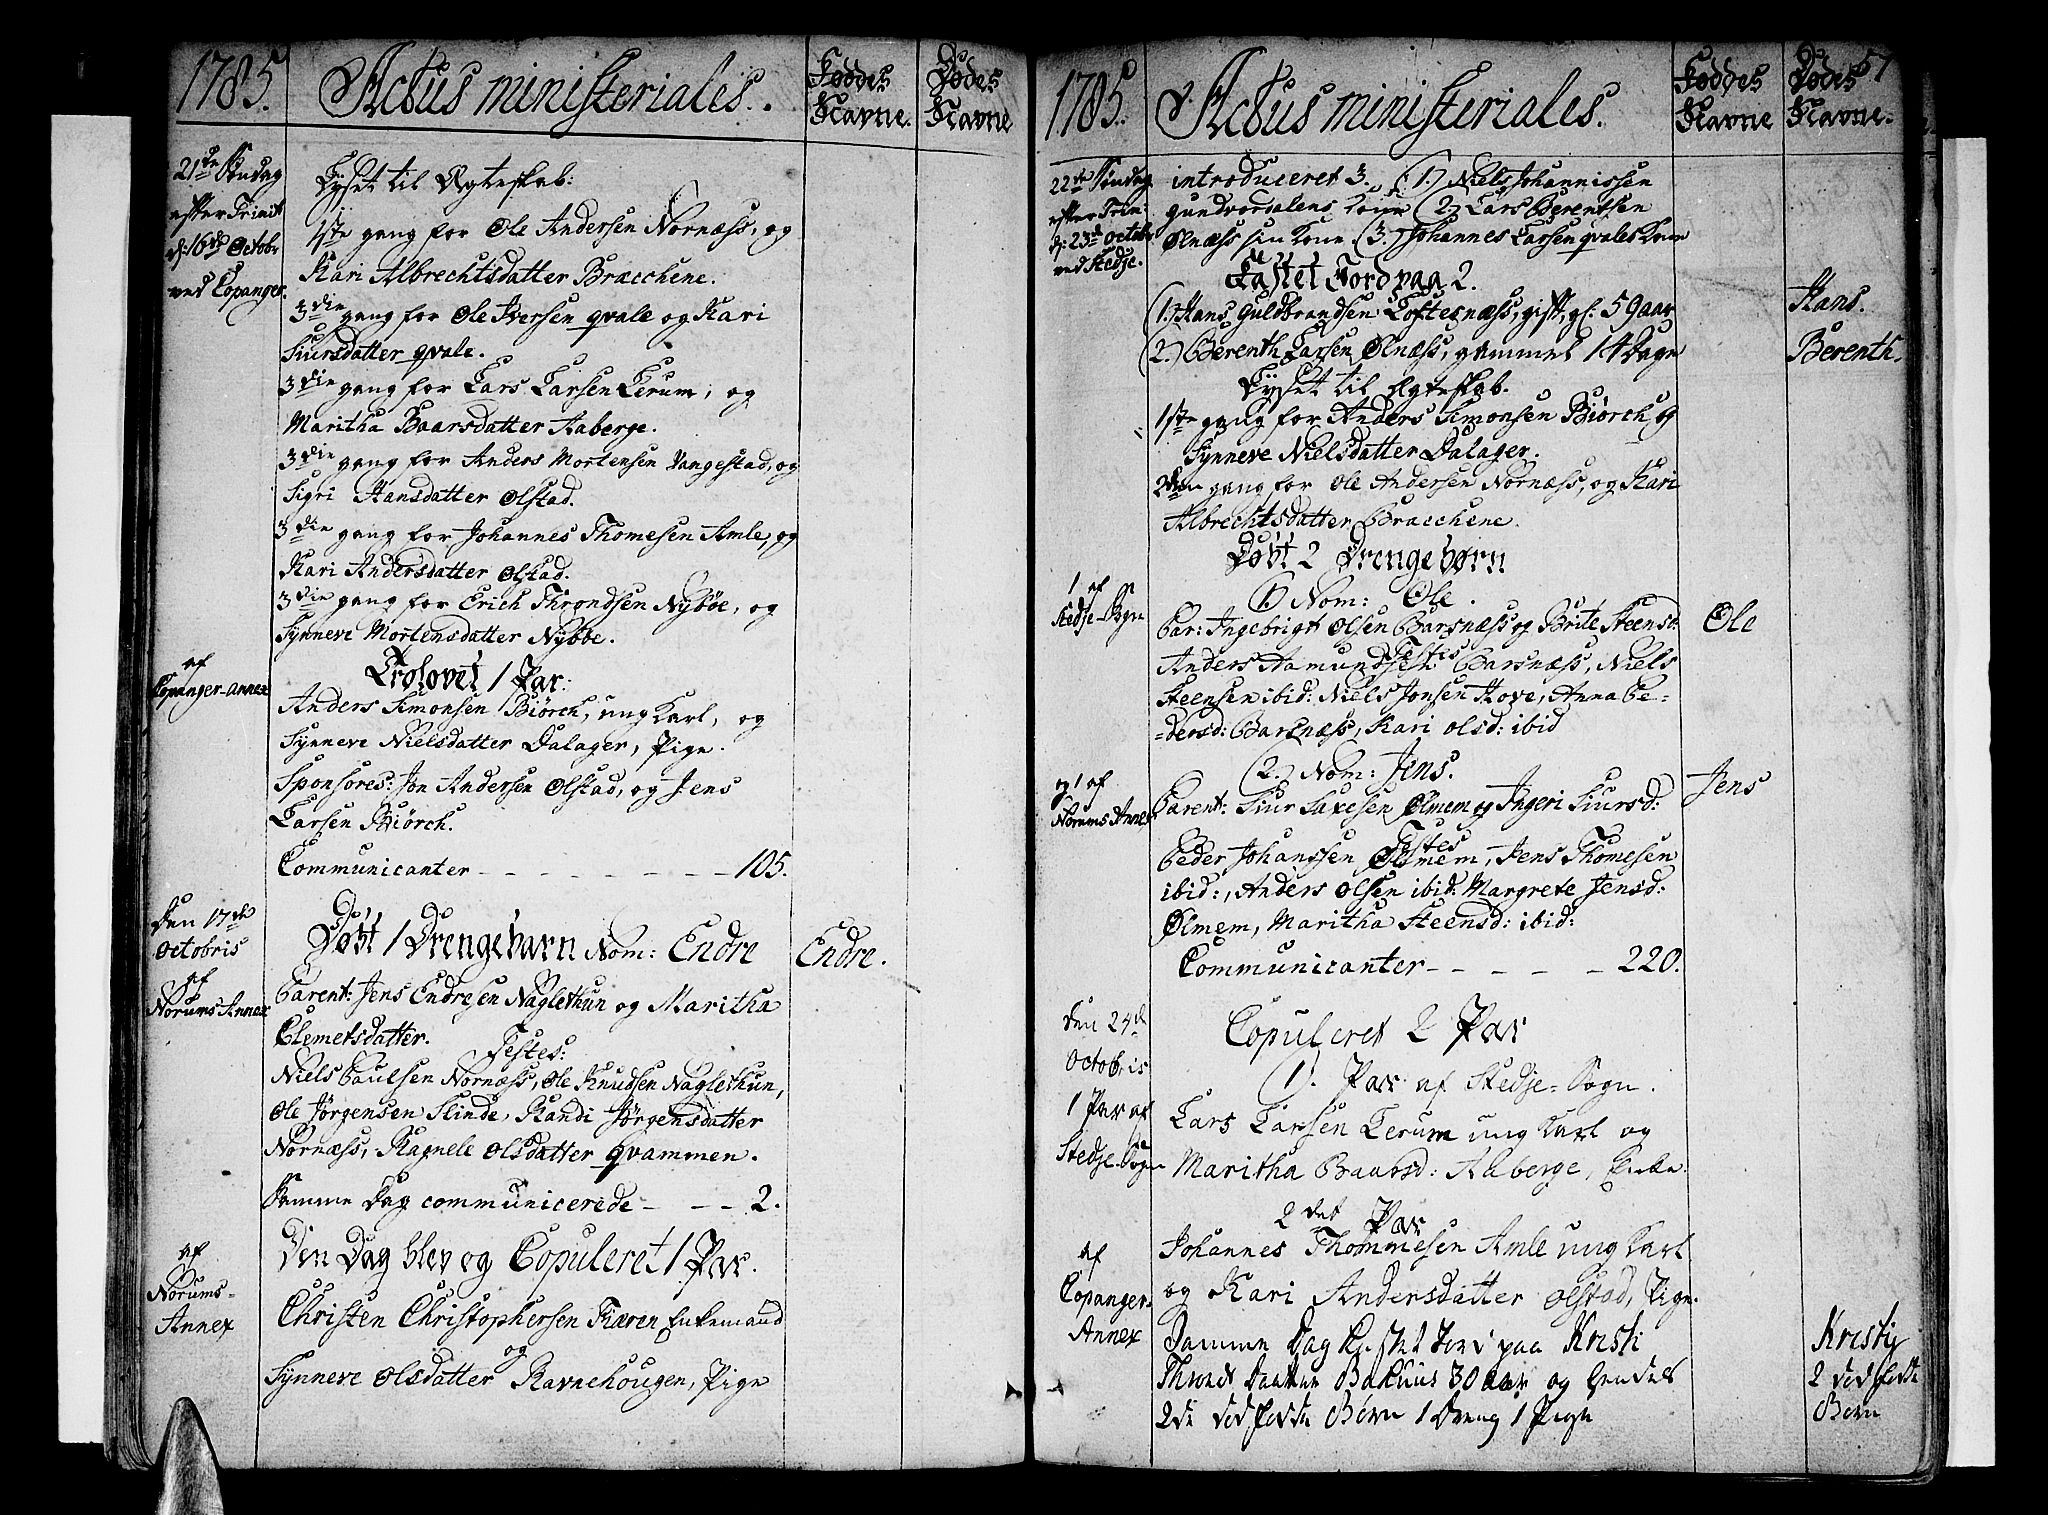 1785. Actus ministeriales. Føddes Navne. Dødes Navne
21de Søndag
efter Trinit
d: 16de Octobr
ved Copanger.
Lÿset til Ægteskab:
1ste gang for Ole Andersen Nornæss, og
Kari Albrechtsdatter Bræcchene.
3die gang for Ole Iversen qvale og Kari
Siursdatter qvale.
3die gang for Lars Larsen Lerum, og
Maritha Baarsdatter Aaberge.
3die gang for Anders Mortensen Vangestad, og
Sigri Hansdatter Olstad.
3die gang for Johannes Thomesen Amle, og
Kari Andersdatter Olstad.
3die gang for Erich Throndsen Nybøe, og
Synneve Mortensdatter Nybøe.
af
Copanger-annex
Trolovet 1 Par:
Anders Simonsen Biörch, ung Karl, og
Synneve Nielsdatter Dalager, Pige.
Sponsores: Jon Andersen Olstad, og Jens
Larsen Biörch.
Communicanter - - - - - - - 105.
Den 17de
Octobris
af
Norums Annex
Døbt 1 Drengebarn Nom: Endre
Endre.
Parent: Jens Endresen Naglethun og Maritha
Clemetsdatter.
Testes:
Niels Paulsen Nornæss, Ole Knudsen Naglethun,
Ole Jørgensen Slinde, Randi Jørgensdatter
Nornæss, Ragnele Olsdatter qvammen.
Samme Dag communicerede - - - 2.
af
Norums-
Annex
Den Dag blev og Copuleret 1 Par.
Christen Christophersen Fiæren Enkemand
og
Synneve Olsdatter Ravnehougen, Pige
1785. Actus ministeriales. Føddes Navne Dødes Navne. 57
22de Søndag
efter Trin:
d: 23de Octobr
ved Stedje.
introduceret 3. (1.) Niels Johannissen
gundvordalens Kone (2.) Lars Berentsen
Ølnæss sin Kone (3.) Johannes Larsen qvales Kone
Kastet Jord paa 2.
(1.) Hans Guldbrandsen Loftesnæss, gift, gl: 59 aar
Hans.
(2.) Berenth Larsen Ølnæss, gammel 14 Dage
Berenth.
Lÿset til Ægteskab.
1ste gang for Anders Simonsen Biörch og
Synneve Nielsdatter Dalager.
2den gang for Ole Andersen Nornæss, og Kari
Albrechtsdatter Bræcchene.
Døbt 2 Drengebørn
1 af
Stedje-Sogn
(1.) Nom: Ole.
Par: Ingebrigt Olsen Barsnæss og Brite Steensd:
Ole
Testes
Anders Aamundsen Barsnæss, Niels
Steensen ibid: Niels Jonsen Hove, Anna Pe-
-dersd: Barsnæss, Kari Olsd: ibid
(2.) Nom: Jens.
og 1 af
Norums Annex
Parent: Siur Saxesen Ølmem og Ingeri Siursd:
Jens
Testes
Peder Johanssen Ølmem, Jens Thomesen
ibid:, Anders Olsen ibid: Margrete Jensd:
Ølmem, Maritha Steensd: ibid:
Communicanter - - - - - 220.
Den 24de
Octobris
1 Par af
Stedje-Sogn
Copuleret 2 Par
1). Par af Stedje-Sogn.
Lars Larsen Lerum ung Karl og
Maritha Baarsd: Aaberge, Enke.
2det Par
af
Copanger-
Annex
Johannes Thommesen Amle ung Karl
og Kari Andersdatter Olstad, Pige.
Samme Dag Kastet Jord paa Kristi
Thronds Daatter 30 aar og
2de dødfødte Børn 1 Dreng 1 Pige
Kristi
2 dødfødte
Børn